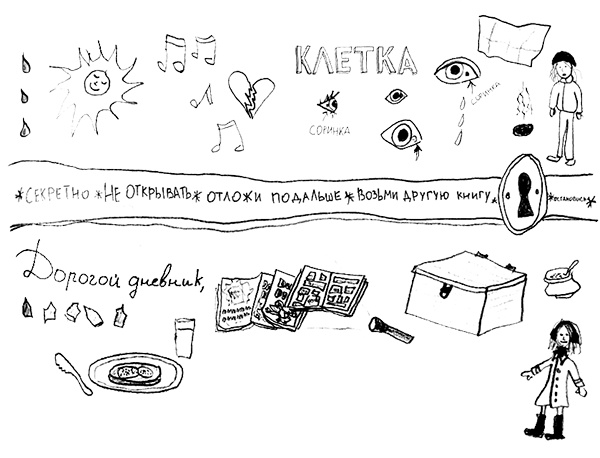 КЛЕТКА
СОРИНКА
СОРИНКА
*СЕКРЕТНО *НЕ ОТКРЫВАТЬ* ОТЛОЖИ ПОДАЛЬШЕ * ВОЗЬМИ ДРУГУЮ КНИГУ * *ОСТАНОВИСЬ*
Дорогой дневник,